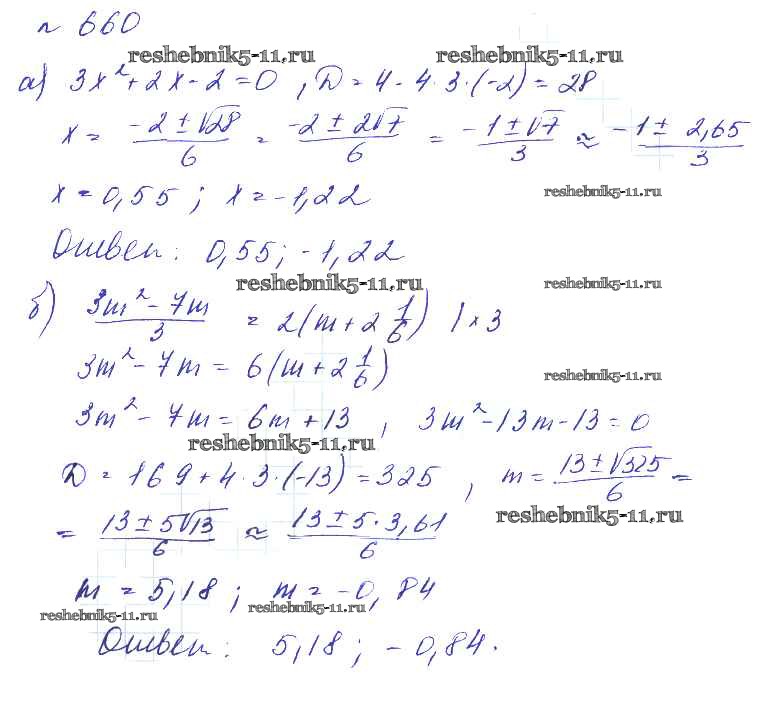 n 660
reshebnik5-11.ru reshebnik5-11.ru
а) 3x² + 2x - 2 = 0 , D = 4 - 4·3·(-2) = 28
x = (-2 ± √28)/6 = (-2 ± 2√7)/6 = (-1 ± √7)/3 ≈ (-1 ± 2,65)/3
x = 0,55 ; x = -1,22 reshebnik5-11.ru
Ответ: 0,55; -1,22
reshebnik5-11.ru reshebnik5-11.ru
б) (3m² - 7m)/3 = 2(m + 2 1/6) | × 3
3m² - 7m = 6(m + 2 1/6) reshebnik5-11.ru
3m² - 7m = 6m + 13 , 3m² - 13m - 13 = 0
reshebnik5-11.ru
D = 169 + 4·3·(-13) = 325 , m = (13 ± √325)/6 =
reshebnik5-11.ru
= (13 ± 5√13)/6 ≈ (13 ± 5·3,61)/6
m = 5,18 ; m = -0,84
reshebnik5-11.ru reshebnik5-11.ru
Ответ: 5,18 ; -0,84.